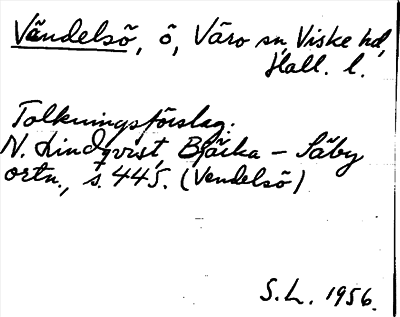 Vändelsö, ö, Värö sn, Viske hd,
Hall. l.
Tolkningsförslag:
N. Lindqvist, Bjärka - Säby
ortn., s. 445. (Vendelsö)
S.L. 1956.